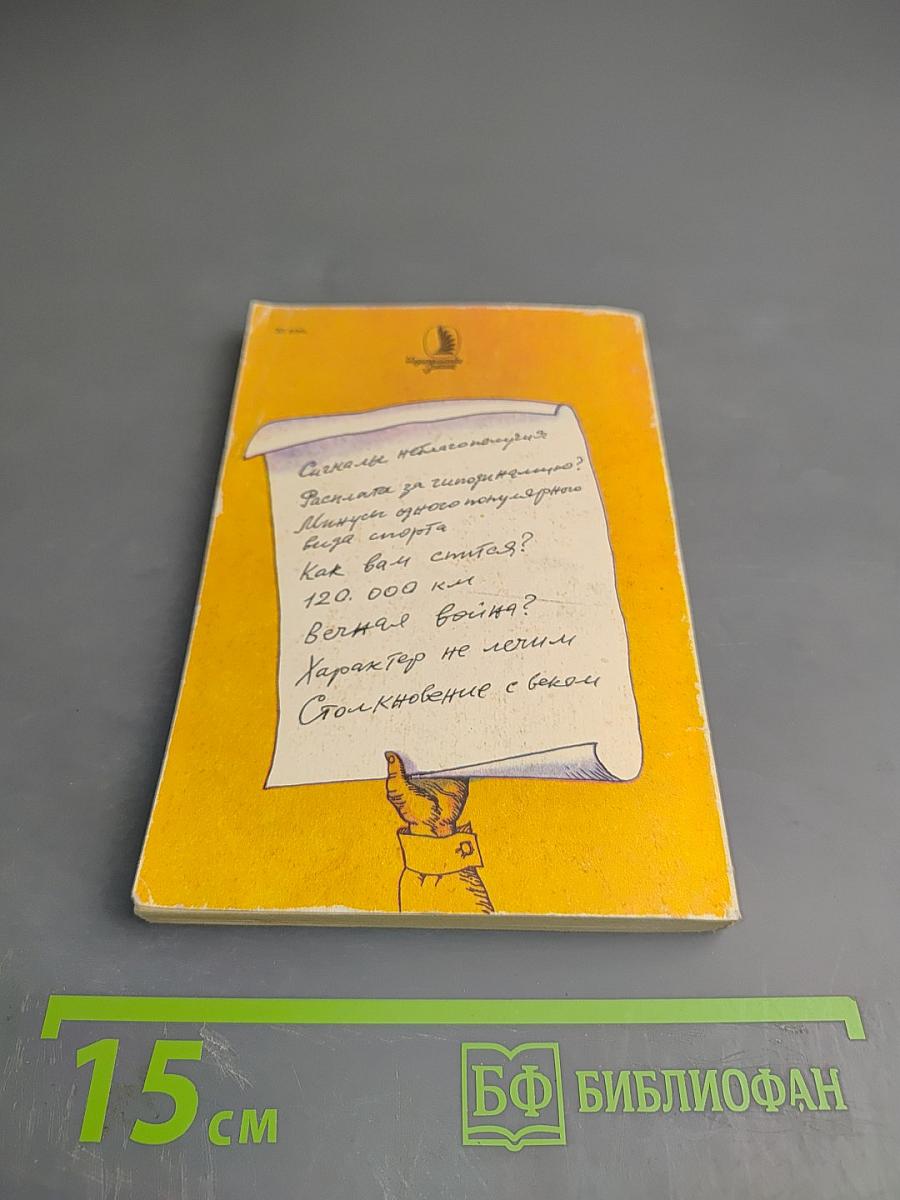 Сигналы неблагополучия
Расплата за гиподинамию?
Минусы одного популярного
вида спорта
Как вам спится?
120.000 км
Вечная война?
Характер не лечим
Столкновение с веком
15 см
БФ БИБЛИОФАН